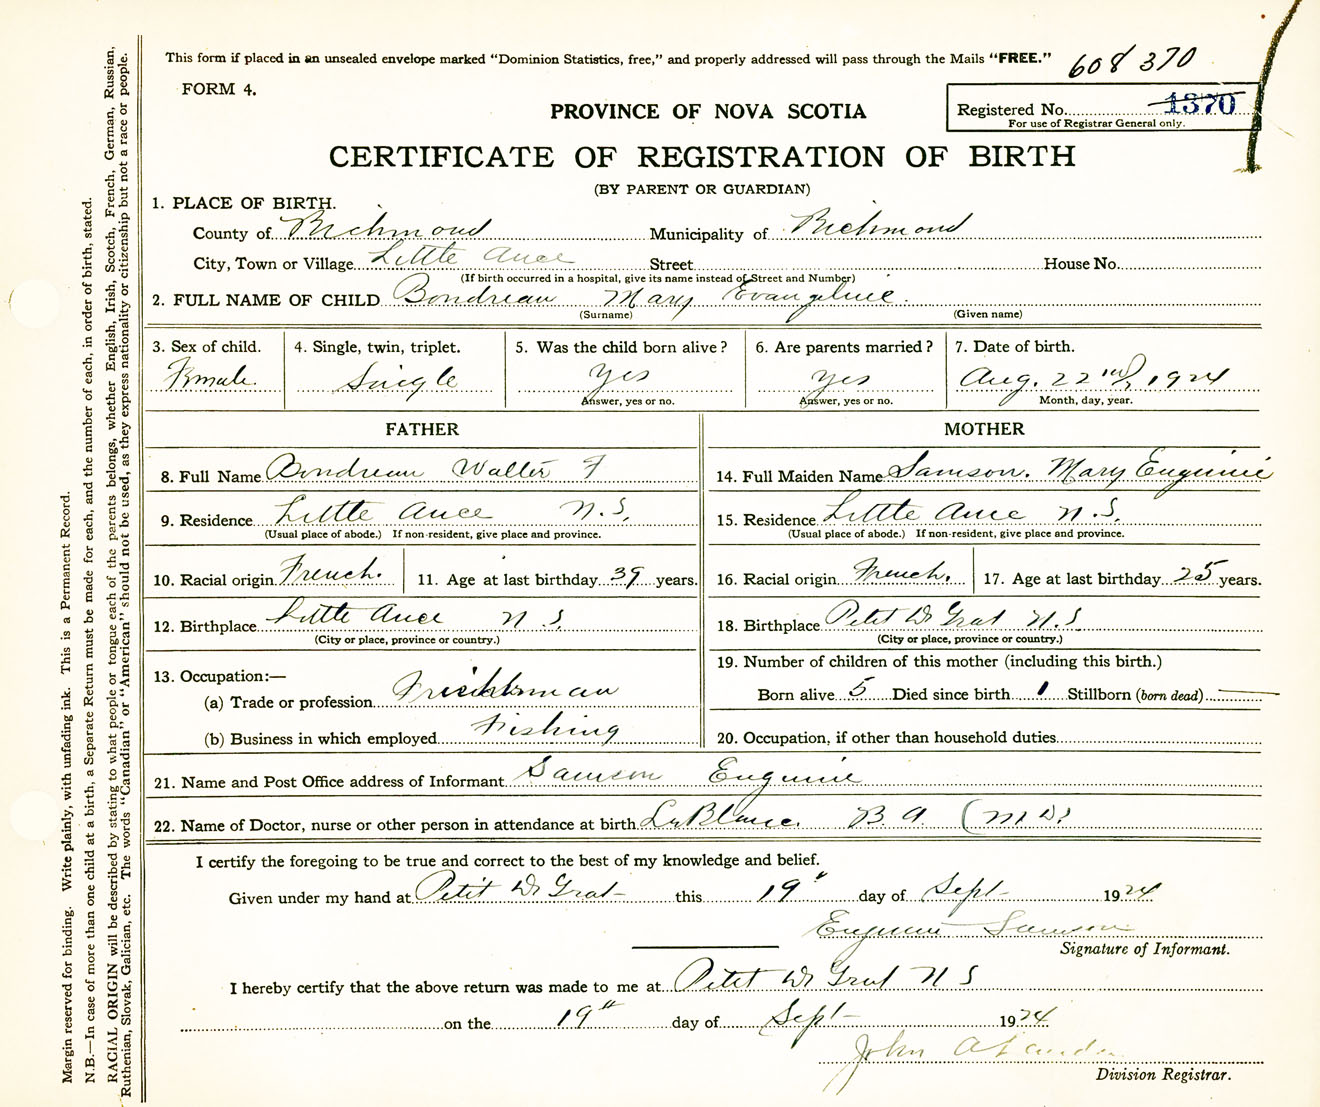 This form if placed in an unsealed envelope marked "Dominion Statistics, free," and properly addressed will pass through the Mails "FREE."
608 370
FORM 4.
PROVINCE OF NOVA SCOTIA
Registered No. 1370
For use of Registrar General only.
CERTIFICATE OF REGISTRATION OF BIRTH
(BY PARENT OR GUARDIAN)
1. PLACE OF BIRTH.
County of Richmond Municipality of Richmond
City, Town or Village Little Ance Street House No.
(If birth occurred in a hospital, give its name instead of Street and Number)
2. FULL NAME OF CHILD Boudreau Mary Evangeline.
(Surname) (Given name)
3. Sex of child. 4. Single, twin, triplet. 5. Was the child born alive? 6. Are parents married? 7. Date of birth.
Female Single Yes Yes Aug. 22nd 1924
Answer, yes or no. Answer, yes or no. Month, day, year.
FATHER MOTHER
8. Full Name Boudreau Walter F 14. Full Maiden Name Samson. Mary Eugenie
9. Residence Little Ance N.S. 15. Residence Little Ance N.S.
(Usual place of abode.) If non-resident, give place and province. (Usual place of abode.) If non-resident, give place and province.
10. Racial origin French. 11. Age at last birthday 39 years. 16. Racial origin French. 17. Age at last birthday 25 years.
12. Birthplace Little Ance N.S. 18. Birthplace Petit De Grat N.S
(City or place, province or country.) (City or place, province or country.)
19. Number of children of this mother (including this birth.)
13. Occupation:—
(a) Trade or profession Born alive 5 Died since birth 1 Stillborn (born dead)
(b) Business in which employed Fishing 20. Occupation, if other than household duties
21. Name and Post Office address of Informant Samson Eugenie
22. Name of Doctor, nurse or other person in attendance at birth LeBlanc. B. A. (M.D.)
I certify the foregoing to be true and correct to the best of my knowledge and belief.
Given under my hand at Petit De Grat this 19" day of Sept 1924
Eugenie Samson
Signature of Informant.
I hereby certify that the above return was made to me at Petit De Grat N S
on the 19th day of Sept 1924
John
Division Registrar.
Margin reserved for binding. Write plainly, with unfading ink. This is a Permanent Record.
N.B.—In case of more than one child at a birth, a Separate Return must be made for each, and the number of each, in order of birth, stated.
RACIAL ORIGIN will be described by stating to what people or tongue each of the parents belongs, whether English, Irish, Scotch, French, German, Russian,
Ruthenian, Slovak, Galician, etc. The words "Canadian" or "American" should not be used, as they express nationality or citizenship but not a race or people.